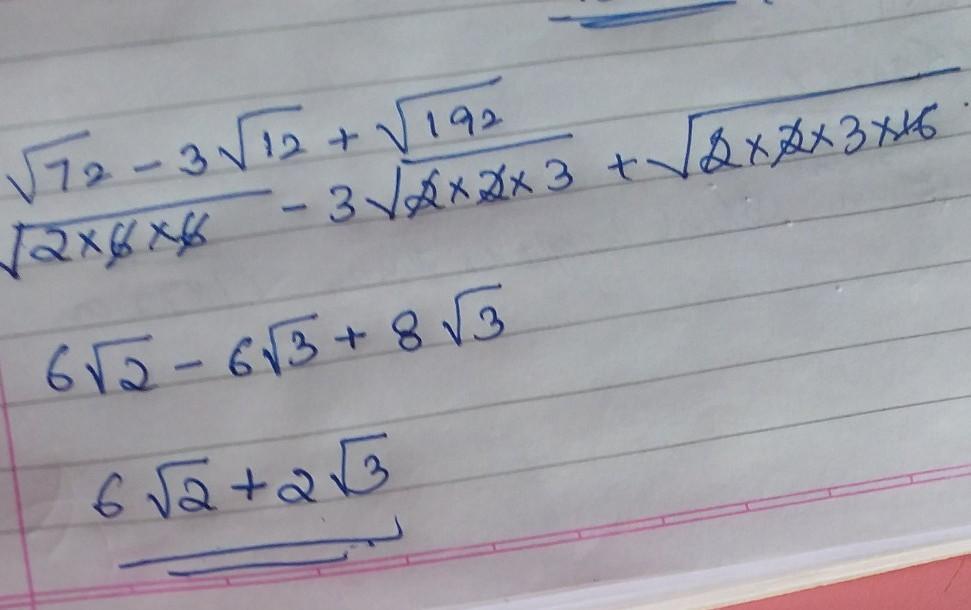 √72 - 3√12 + √192
√2×6×6 - 3√2×2×3 + √2×2×3×16
6√2 - 6√3 + 8√3
6√2 + 2√3